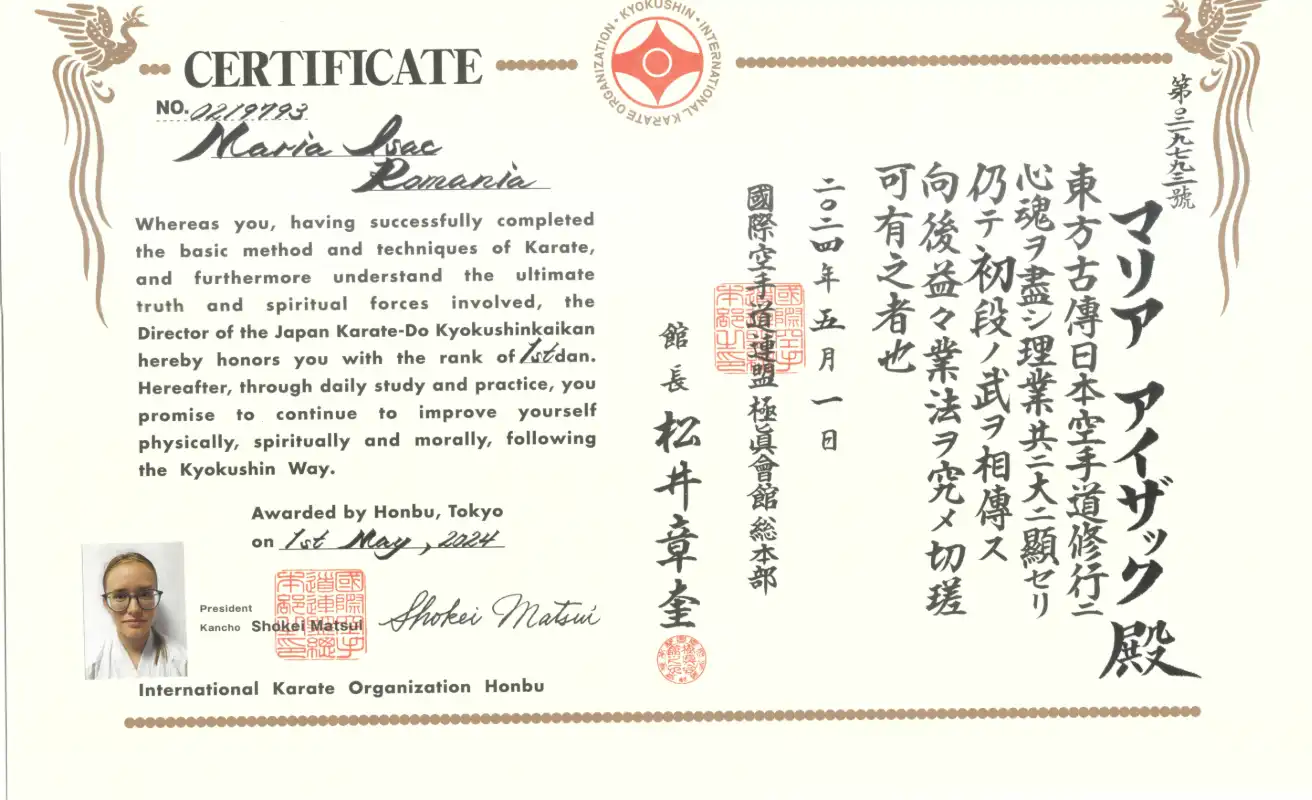 KYOKUSHIN • INTERNATIONAL KARATE ORGANIZATION •
CERTIFICATE
NO. 0219793
Maria Isac
Romania
Whereas you, having successfully completed
the basic method and techniques of Karate,
and furthermore understand the ultimate
truth and spiritual forces involved, the
Director of the Japan Karate-Do Kyokushinkaikan
hereby honors you with the rank of 1st dan.
Hereafter, through daily study and practice, you
promise to continue to improve yourself
physically, spiritually and morally, following
the Kyokushin Way.
Awarded by Honbu, Tokyo
on 1st May, 2024
President
Kancho Shokei Matsui
Shokei Matsui
International Karate Organization Honbu
第〇二一九七九三號
マリア アイザック 殿
東方古傳日本空手道修行ニ
心魂ヲ盡シ理業共ニ大ニ顯セリ
仍テ初段ノ武ヲ相傳ス
向後益々業法ヲ究メ切瑳
可有之者也
二〇二四年五月一日
國際空手道連盟極眞會館総本部
館長 松井章奎